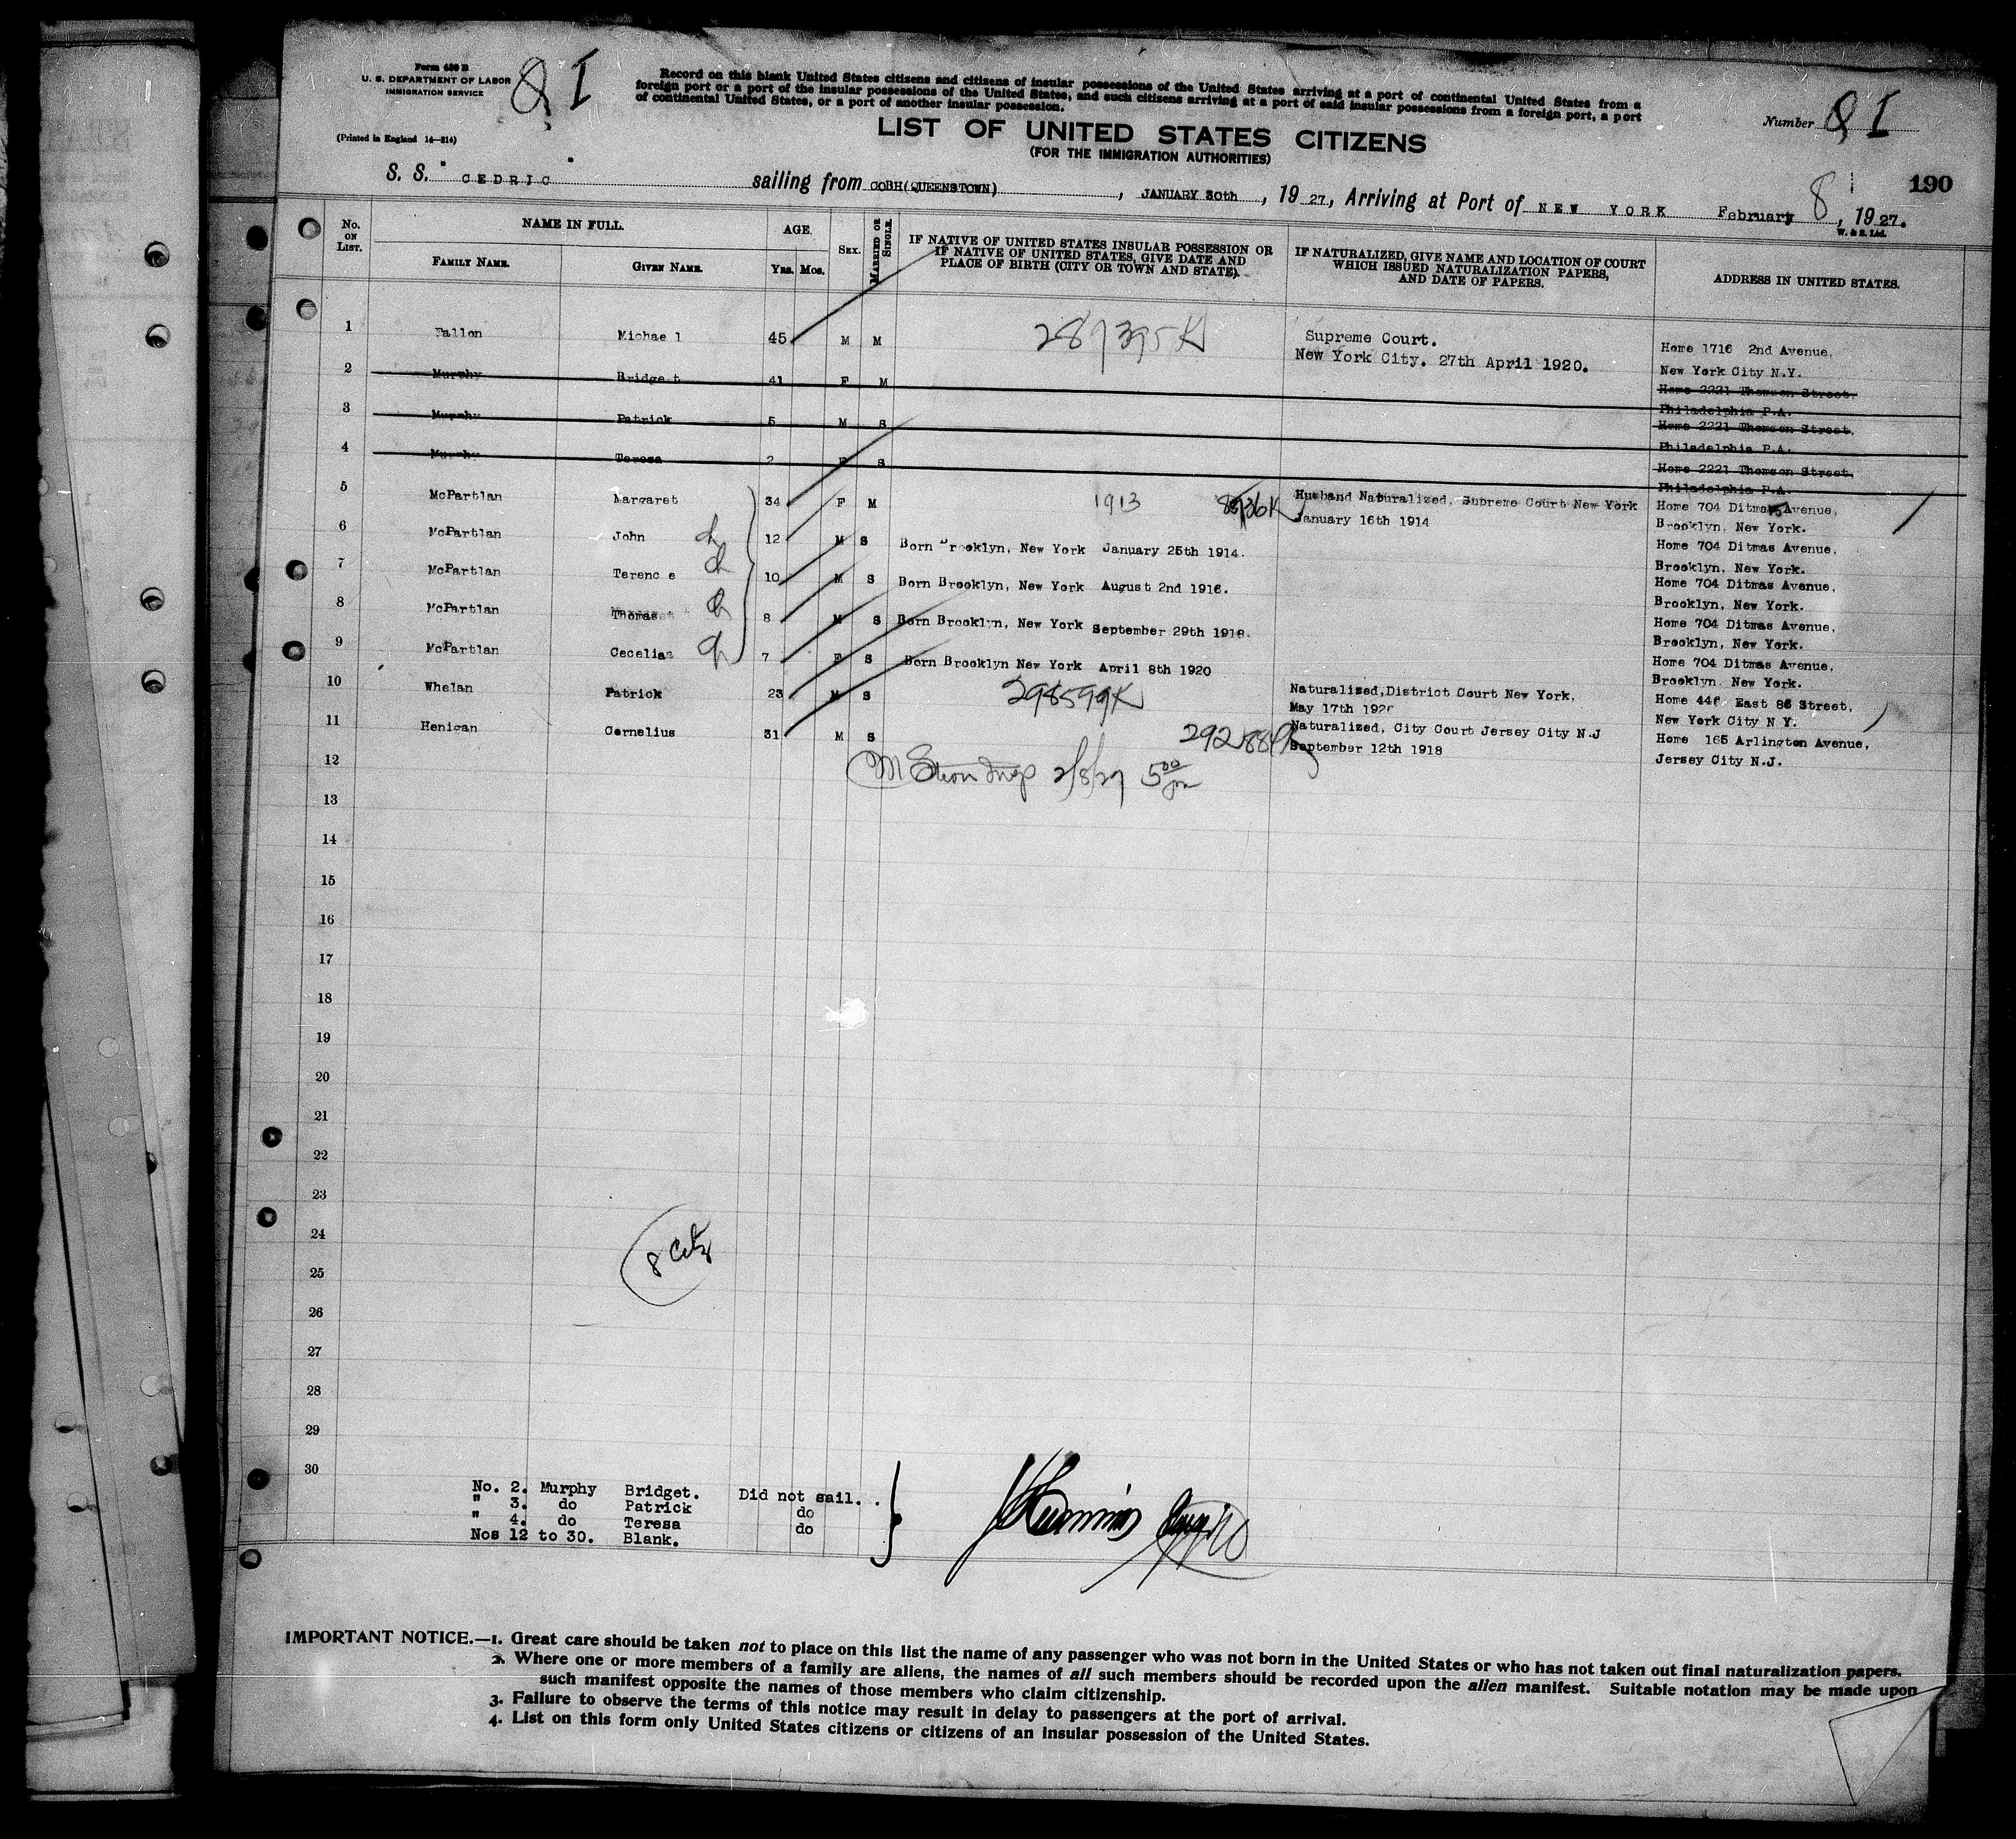 Form 630 B
U. S. DEPARTMENT OF LABOR
IMMIGRATION SERVICE
(Printed in England 14—814)
Record on this blank United States citizens and citizens of insular possessions of the United States arriving at a port of continental United States from a
foreign port or a port of the insular possessions of the United States, and such citizens arriving at a port of said insular possessions from a foreign port, a port
of continental United States, or a port of another insular possession.
LIST OF UNITED STATES CITIZENS
(FOR THE IMMIGRATION AUTHORITIES)
Number
190
S. S. " CEDRIC " sailing from COBH(QUEENSTOWN), JANUARY 30th, 1927, Arriving at Port of NEW YORK February 8, 1927.
W. & S. Ltd.
No. ON LIST. NAME IN FULL. AGE. SEX. MARRIED OR SINGLE.
FAMILY NAME. GIVEN NAME. Yrs. Mos.
IF NATIVE OF UNITED STATES INSULAR POSSESSION OR
IF NATIVE OF UNITED STATES, GIVE DATE AND
PLACE OF BIRTH (CITY OR TOWN AND STATE).
IF NATURALIZED, GIVE NAME AND LOCATION OF COURT
WHICH ISSUED NATURALIZATION PAPERS,
AND DATE OF PAPERS.
ADDRESS IN UNITED STATES.
1 Fallon Michael 45 M M 289395K Supreme Court. Home 1716 2nd Avenue,
New York City. 27th April 1920. New York City N.Y.
2 Murphy Bridget 41 F M Home 2221 Thomson Street.
Philadelphia P.A.
3 Murphy Patrick 5 M S Home 2221 Thomson Street.
Philadelphia P.A.
4 Murphy Teresa 2 F S Home 2221 Thomson Street.
Philadelphia P.A.
5 McPartlan Margaret 34 F M 1913 Husband Naturalized, Supreme Court New York Home 704 Ditmas Avenue,
January 16th 1914 Brooklyn, New York.
6 McPartlan John 12 M S Born Brooklyn, New York January 25th 1914. Home 704 Ditmas Avenue,
Brooklyn, New York.
7 McPartlan Terence 10 M S Born Brooklyn, New York August 2nd 1916. Home 704 Ditmas Avenue,
Brooklyn, New York.
8 McPartlan Thomas 8 M S Born Brooklyn, New York September 29th 1918. Home 704 Ditmas Avenue,
Brooklyn, New York.
9 McPartlan Cecelia 7 F S Born Brooklyn New York April 8th 1920 Home 704 Ditmas Avenue,
Brooklyn. New York.
10 Whelan Patrick 23 M S 298599K Naturalised, District Court New York, Home 446 East 86 Street,
May 17th 1926 New York City N Y.
11 Henigan Cornelius 31 M S Naturalized, City Court Jersey City N.J Home 165 Arlington Avenue,
September 12th 1918 Jersey City N.J.
12 2/8/27 5 00 pm
13
14
15
16
17
18
19
20
21
22
23
24
25
26
27
28
29
30
No. 2. Murphy Bridget. Did not sail.
" 3. do Patrick do
" 4. do Teresa do
Nos 12 to 30. Blank.
IMPORTANT NOTICE.—1. Great care should be taken not to place on this list the name of any passenger who was not born in the United States or who has not taken out final naturalization papers.
2. Where one or more members of a family are aliens, the names of all such members should be recorded upon the alien manifest. Suitable notation may be made upon
such manifest opposite the names of those members who claim citizenship.
3. Failure to observe the terms of this notice may result in delay to passengers at the port of arrival.
4. List on this form only United States citizens or citizens of an insular possession of the United States.